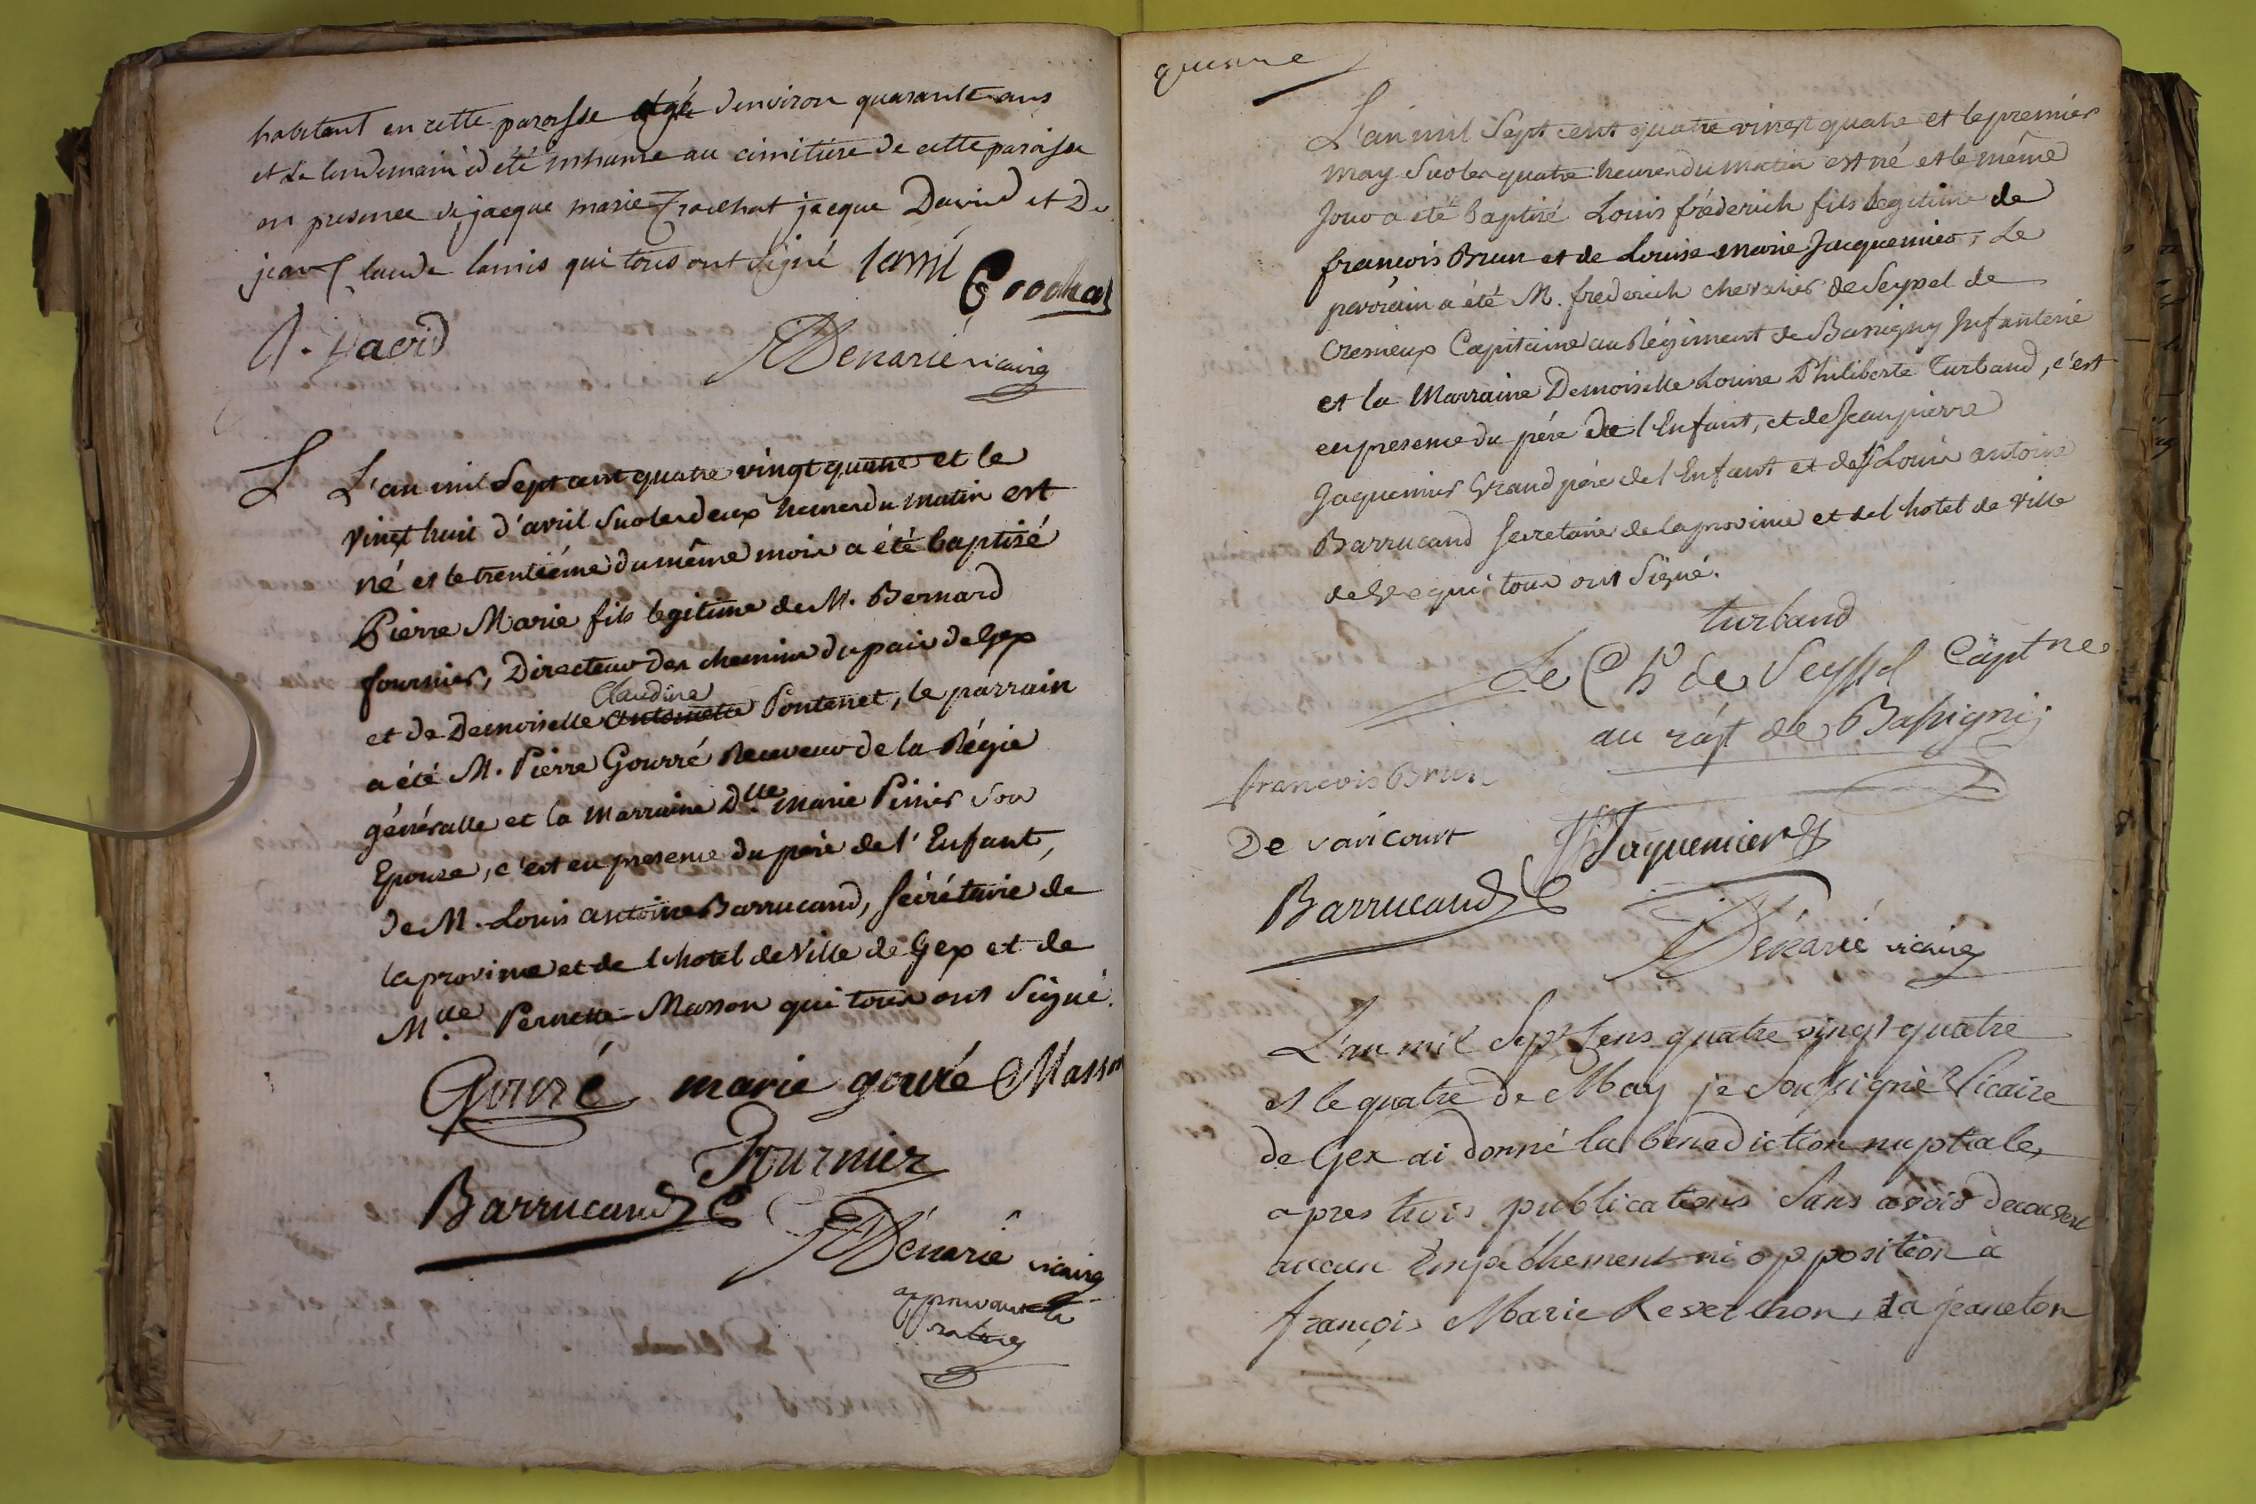 habitant en cette paroisse agé d'environ quarante ans
et le lendemain a été inhumé au cimitiere de cette paroisse
en presence de jacque marie Crochat jacque David et De
jean Claude lamis qui tous ont signé lami Crochat
J. David
Dénarié vicaire
L L'an mil Sept cent quatre vingt quatre et le
vingt huit d'avril sur les deux heures du matin est
né et le trentiéme du même mois a été baptisé
Pierre Marie fils legitime de M. Bernard
fournier, Directeur des chemins du païs de Gex
Claudine
et de Demoiselle Antoinette Pontenet, le parrain
a été M. Pierre Gourré Receveur de la Régie
généralle et la Marraine Dlle Marie Perrier son
Epouse, c'est en presence du père de l'Enfant,
de M. Louis antoine Barrucand, sécrétaire de
la province et de l'hotel de Ville de Gex et de
Mlle Pernette Masson qui tous ont signé.
Gourré marie gouré Masson
Fournier
Barrucand
Dénarié vicaire
approuvant la
rature
quinne
L'an mil Sept cent quatre vingt quatre et le premier
may sur les quatre heures du matin est né et le même
jour a été baptisé Louis fréderich fils legitime de
françois Brun et de Louise Marie Jacquemier, Le
parrain a été M. frederich chevalier de Seyssel de
Cremieux Capitaine au Régiment de Bassigny Infanterie
et la Marraine Demoiselle Louise Philiberte Turband, c'est
en presence du pére de l'Enfant, et de Jean pierre
Jaquemier Grand pére de l'Enfant et de Sr Louis antoine
Barrucand secretaire de la province et de l'hotel de ville
de Gex qui tous ont signé.
turband
Le Ch de Seyssel Capt ne
au rágt de Bassigni
françois Brun
De varicourt
Jaquemier
Barrucand
Dénarié vicaire
L'an mil Sept Cens quatre vingt quatre
et le quatre de May je soussigné Vicaire
de Gex ai donné la benediction nuptiale,
apres trois publications sans avoir decouvert
aucun Empêchement ni opposition à
françois Marie Reverchon, et a jeaneton